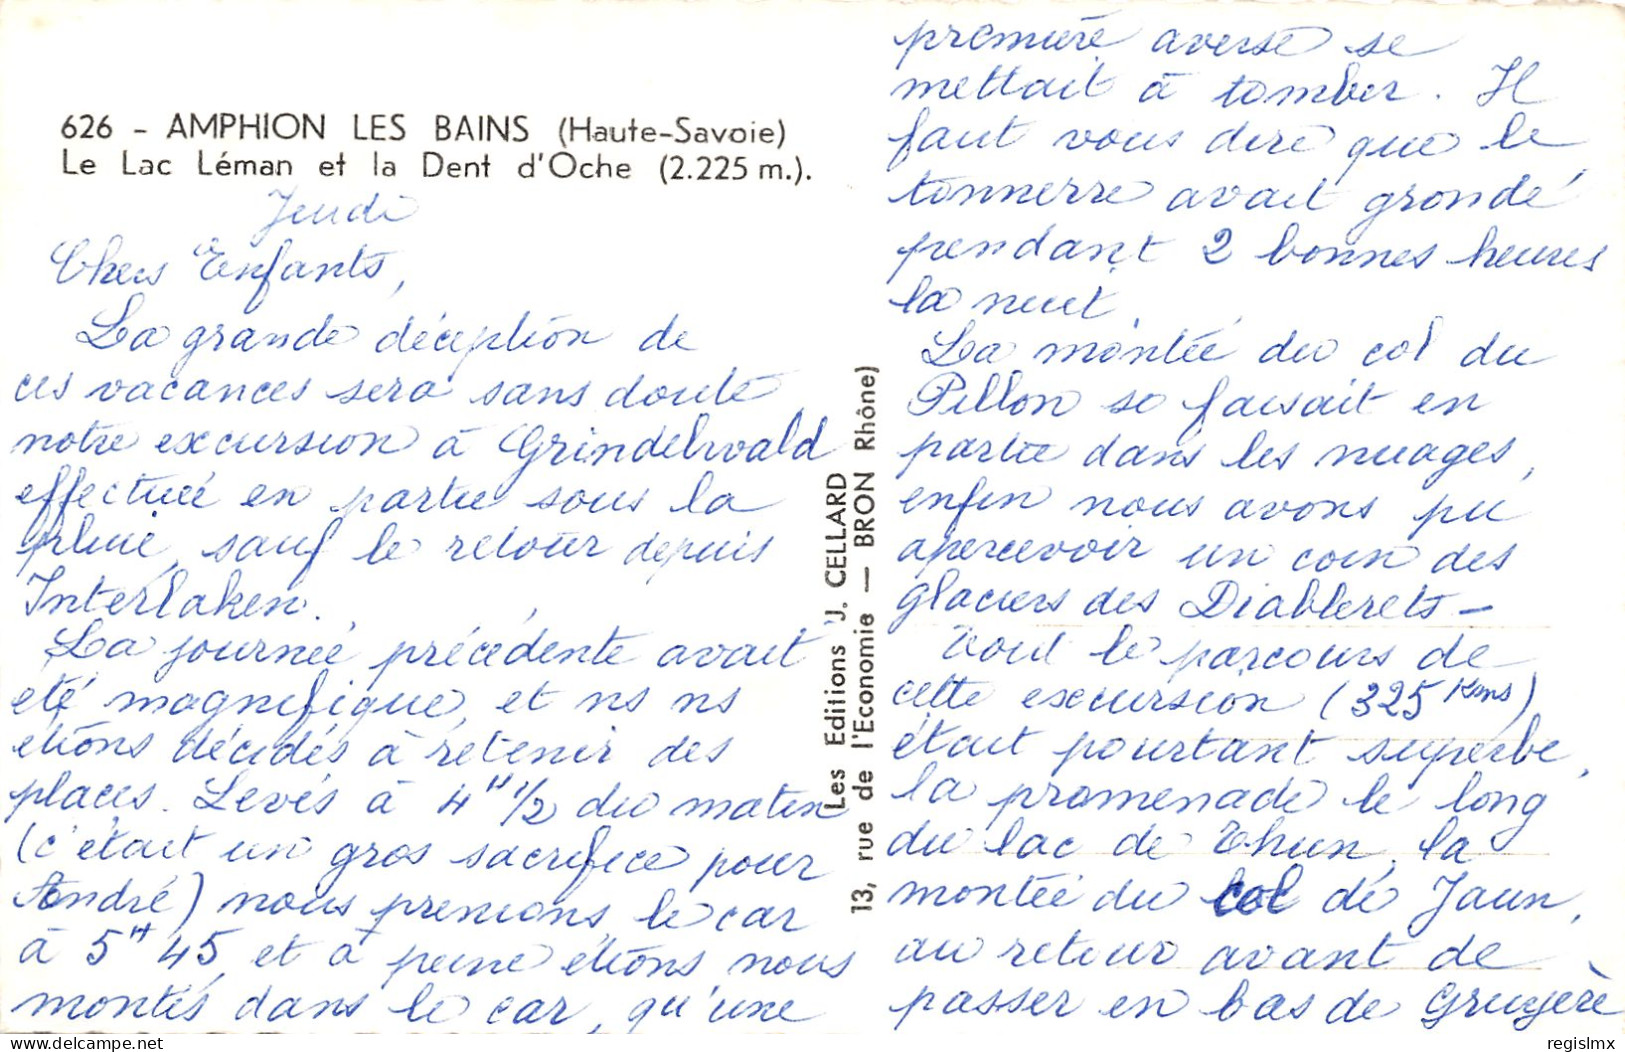 626 - AMPHION LES BAINS (Haute-Savoie)
Le Lac Léman et la Dent d'Oche (2.225 m.).
Jeudi
Chers Enfants,
La grande déception de
ces vacances sera sans doute
notre excursion à Grindelwald
effectuée en partie sous la
pluie, sauf le retour depuis
Interlaken.
La journée précédente avait
été magnifique, et ns ns
étions décidés à retenir des
places. Levés à 4 H 1/2 du matin
(c'était un gros sacrifice pour
André) nous prenions le car
à 5 H 45, et à peine étions nous
montés dans le car, qu'une
Les Editions J. CELLARD
13, rue de l'Economie — BRON Rhône)
première averse se
mettait à tomber. Il
faut vous dire que le
tonnerre avait grondé
pendant 2 bonnes heures
la nuit.
La montée du col du
Pillon se faisait en
partie dans les nuages,
enfin nous avons pu
apercevoir un coin des
glaciers des Diablerets -
Tout le parcours de
cette excursion (325 Kms)
était pourtant superbe,
la promenade le long
du lac de Thun, la
montée du col de Jaun,
au retour avant de
passer en bas de Gruyère
delcampe.net
regislmx